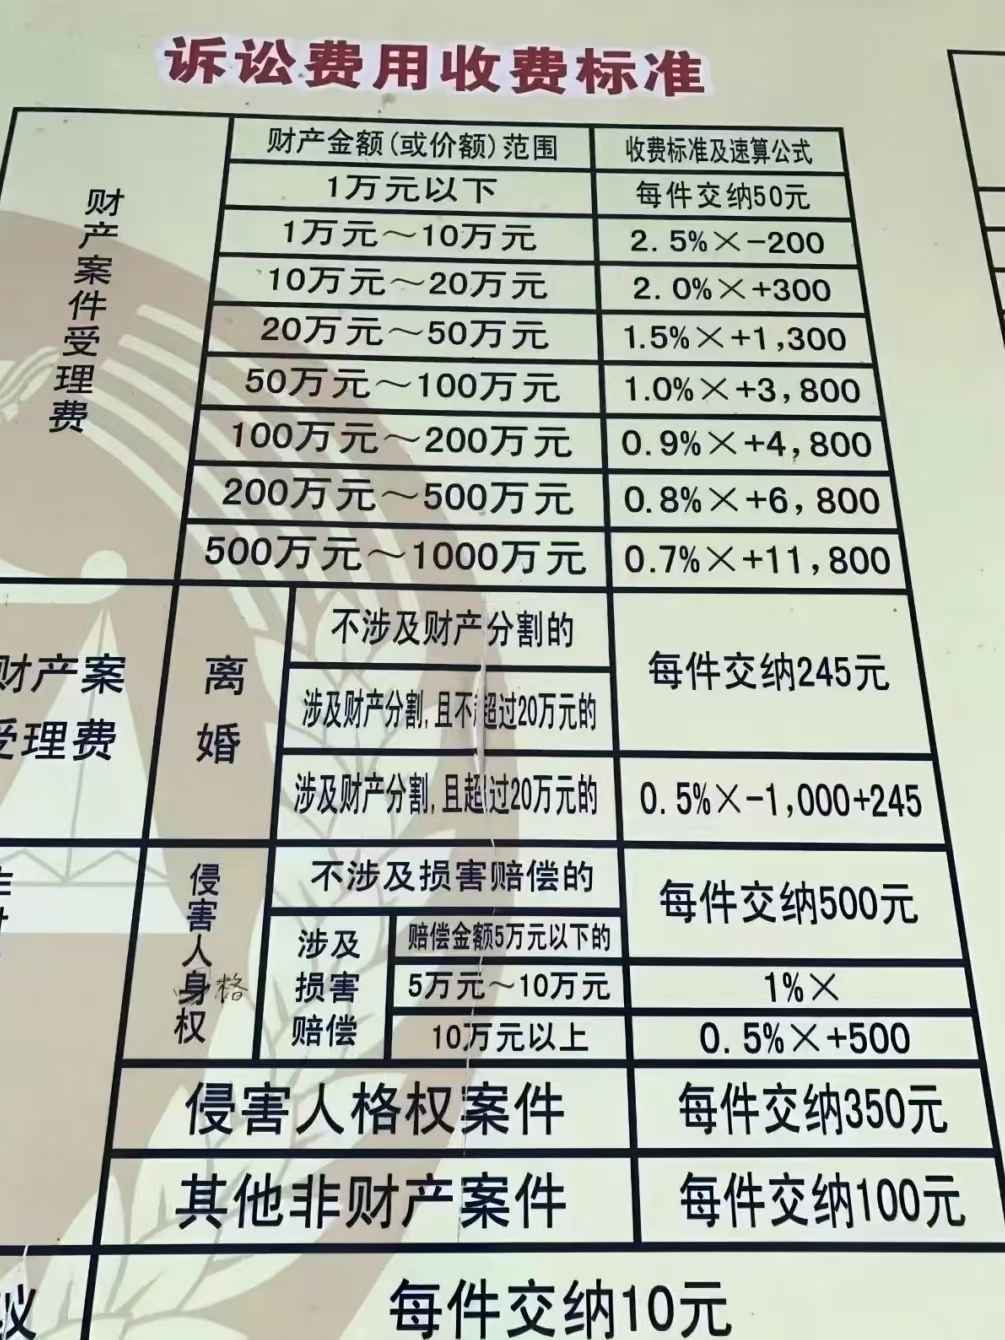 诉讼费用收费标准
财产案件受理费
财产金额(或价额)范围 收费标准及速算公式
1万元以下 每件交纳50元
1万元～10万元 2.5%×-200
10万元～20万元 2.0%×+300
20万元～50万元 1.5%×+1,300
50万元～100万元 1.0%×+3,800
100万元～200万元 0.9%×+4,800
200万元～500万元 0.8%×+6,800
500万元～1000万元 0.7%×+11,800
财产案
受理费
离婚
不涉及财产分割的
涉及财产分割,且不超过20万元的
每件交纳245元
涉及财产分割,且超过20万元的 0.5%×-1,000+245
侵害人身权
格
不涉及损害赔偿的
涉及
损害
赔偿
赔偿金额5万元以下的
每件交纳500元
5万元～10万元 1%×
10万元以上 0.5%×+500
侵害人格权案件 每件交纳350元
其他非财产案件 每件交纳100元
议 每件交纳10元